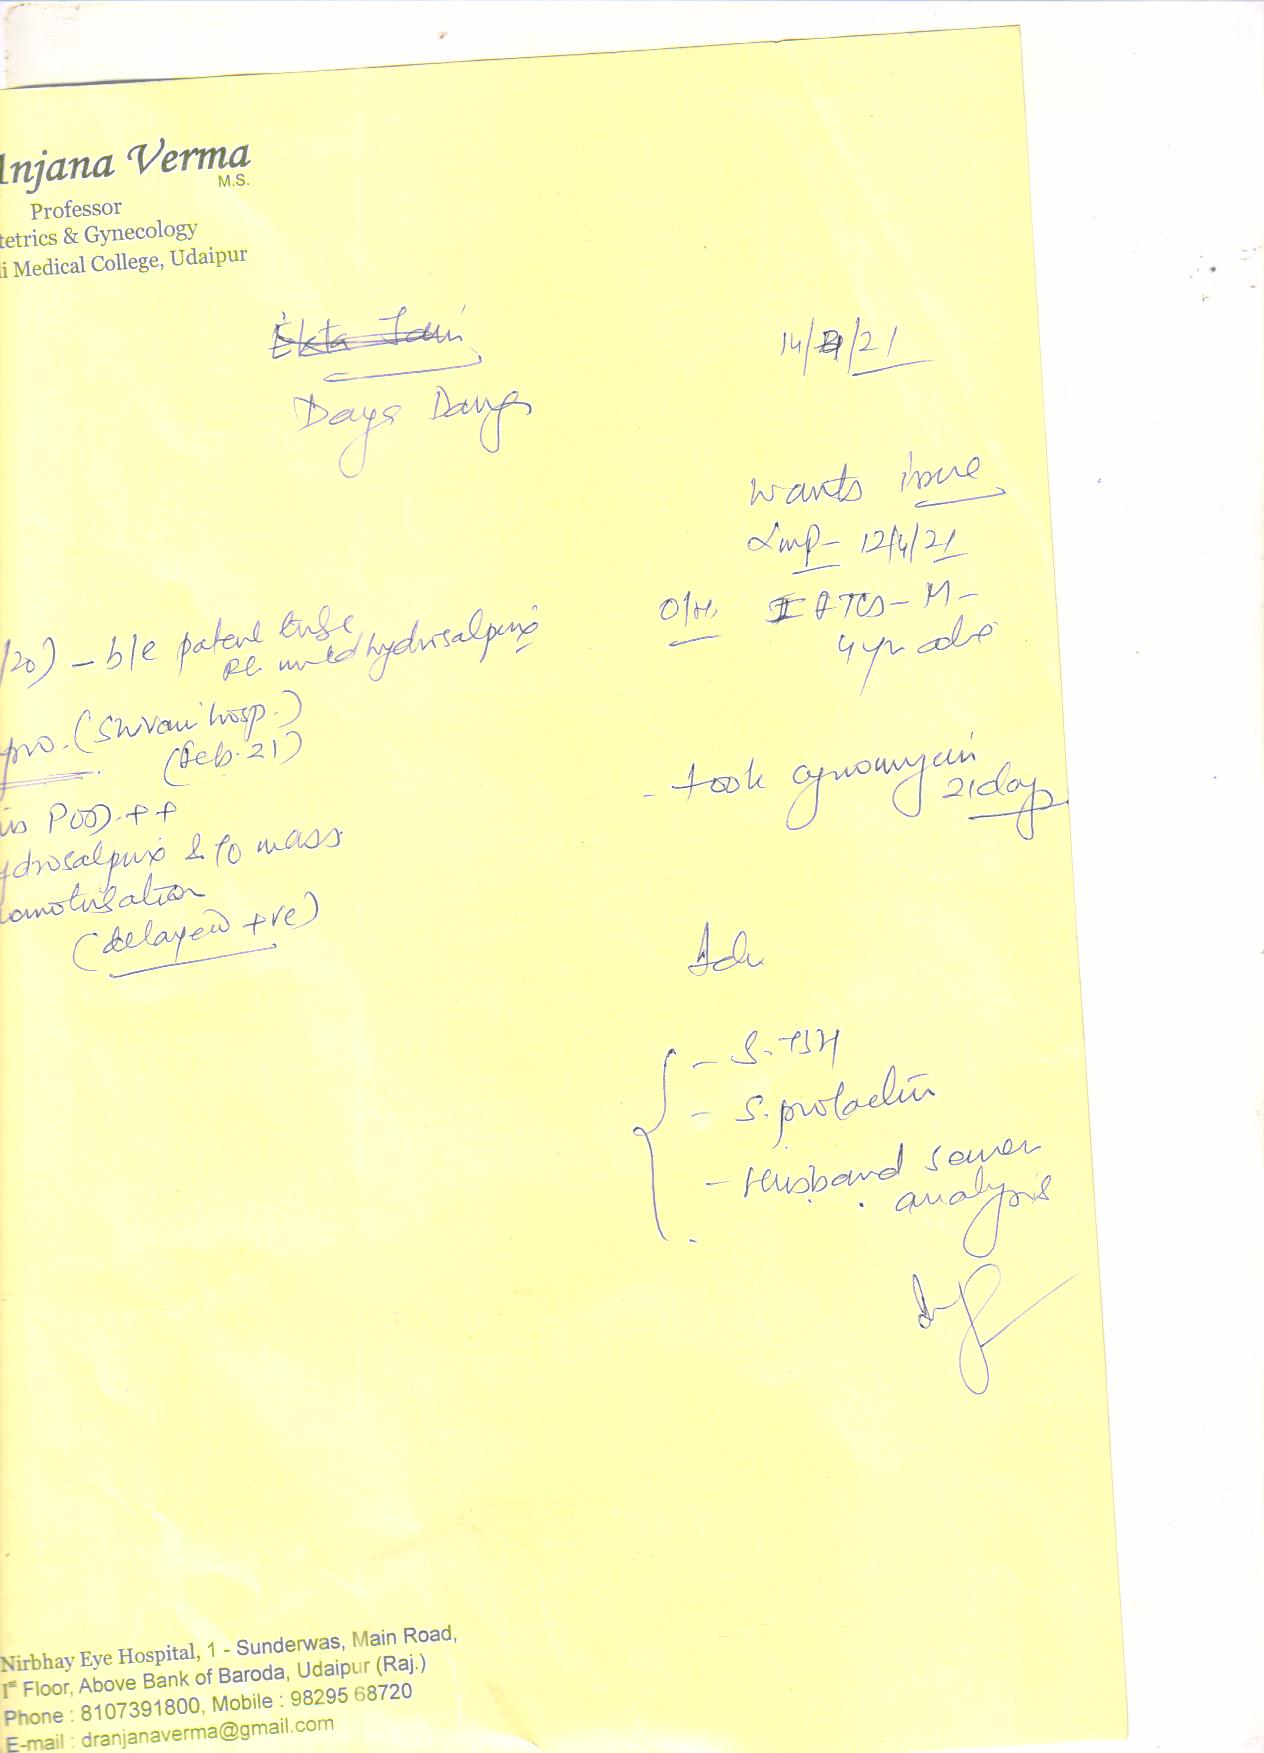 Anjana Verma
M.S.
Professor
tetrics & Gynecology
li Medical College, Udaipur
Ekta
14/4/21
Daya
wants issue
Lmp- 12/4/21
O/H. I FTCS- M-
4yr
/20) - b/l patent tube
Rt. mild hydrosalpinx
pro. (Shivani hosp.)
(Feb. 21)
in POD ++
ydrosalpinx & TO mass
romotubation
(delayed +ve)
- took gynomycin
21day
Adv
- S. TSH
- S. prolactin
- Husband semen
analysis
Nirbhay Eye Hospital, 1 - Sunderwas, Main Road,
1st Floor, Above Bank of Baroda, Udaipur (Raj.)
Phone : 8107391800, Mobile : 98295 68720
E-mail : dranjanaverma@gmail.com